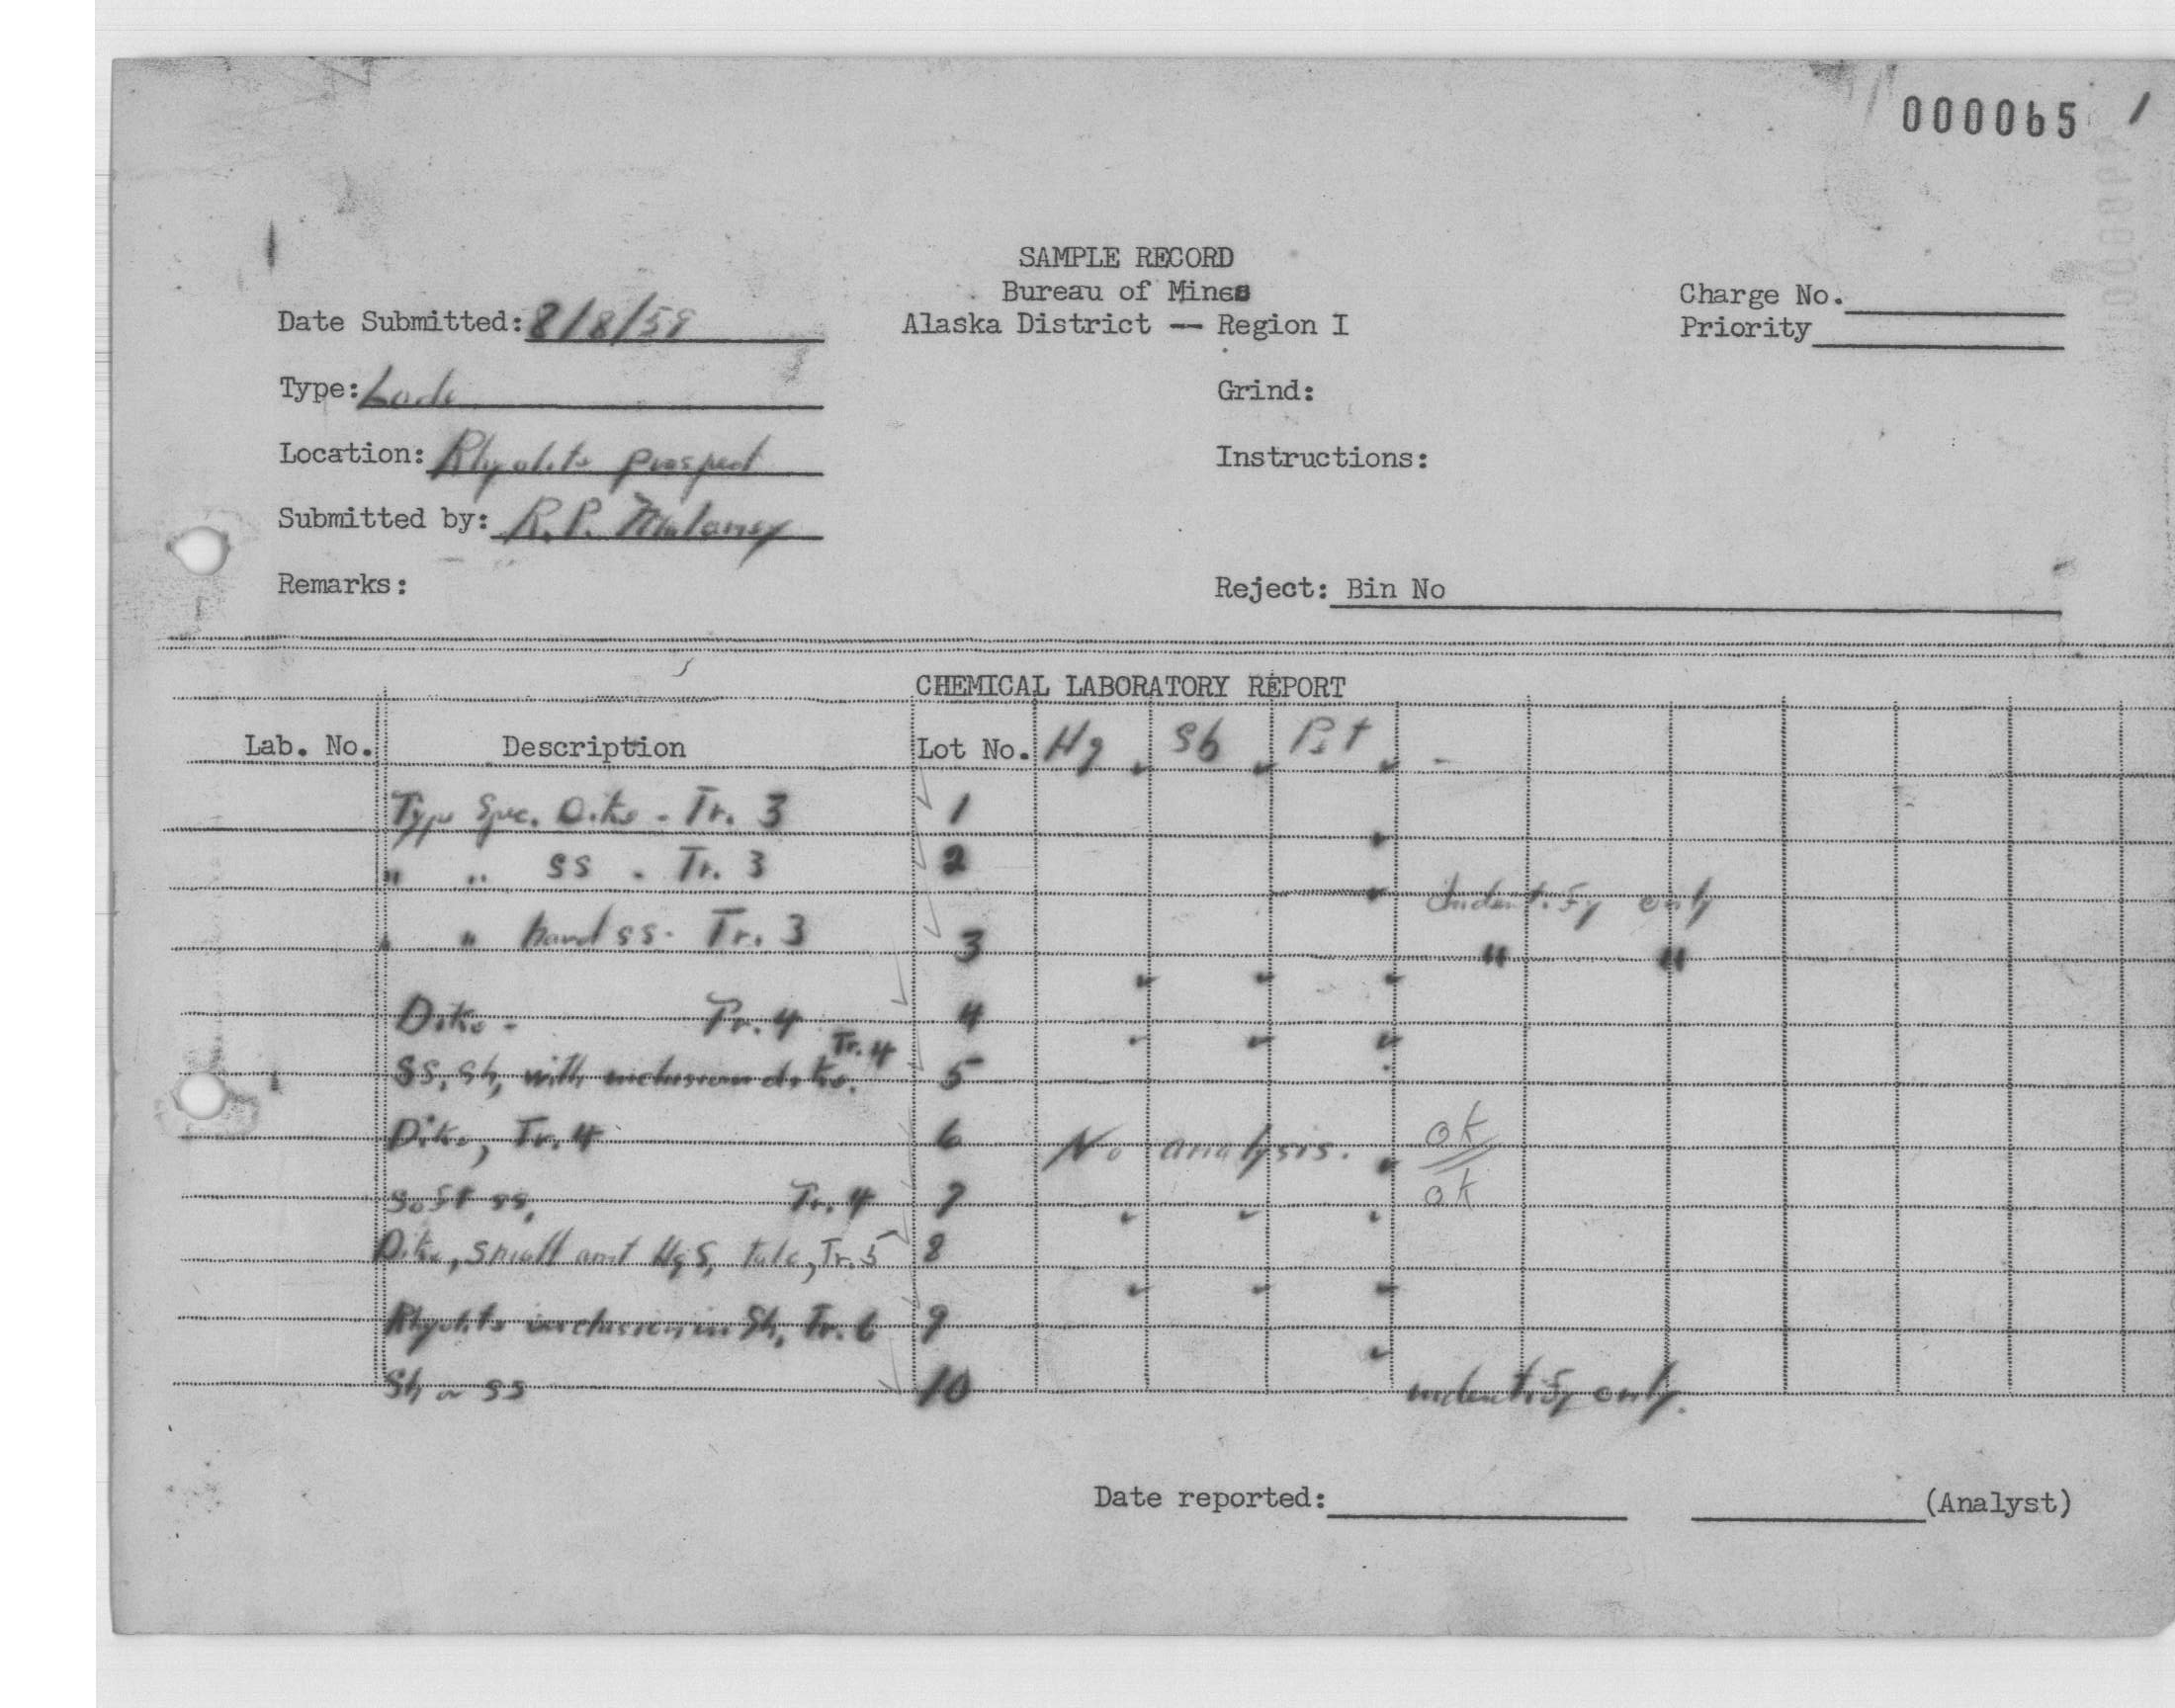 000065 1
SAMPLE RECORD
Bureau of Mines
Alaska District -- Region I
Charge No.
Priority
Date Submitted: 8/8/59
Type: Lode
Grind:
Location: Rhyolite prospect
Instructions:
Submitted by: R.P. Maloney
Remarks:
Reject: Bin No
CHEMICAL LABORATORY REPORT
Lab. No. Description Lot No. Hg Sb Pet
Type Spec. Dike - Tr. 3 1
" " SS - Tr. 3 2
Indentify only
" " hard ss - Tr. 3 3
" "
Dike - Tr. 4 4
SS, Sh, with inclusion dike. Tr. 4 5
Dike, Tr. 4 6 No analysis. ok
Soft ss, Tr. 4 7 ok
Dike, small amt HgS, talc, Tr. 5 8
Rhyolite inclusion in Sh, Tr. 6 9
Sh ~ SS 10 indentify only.
Date reported: (Analyst)